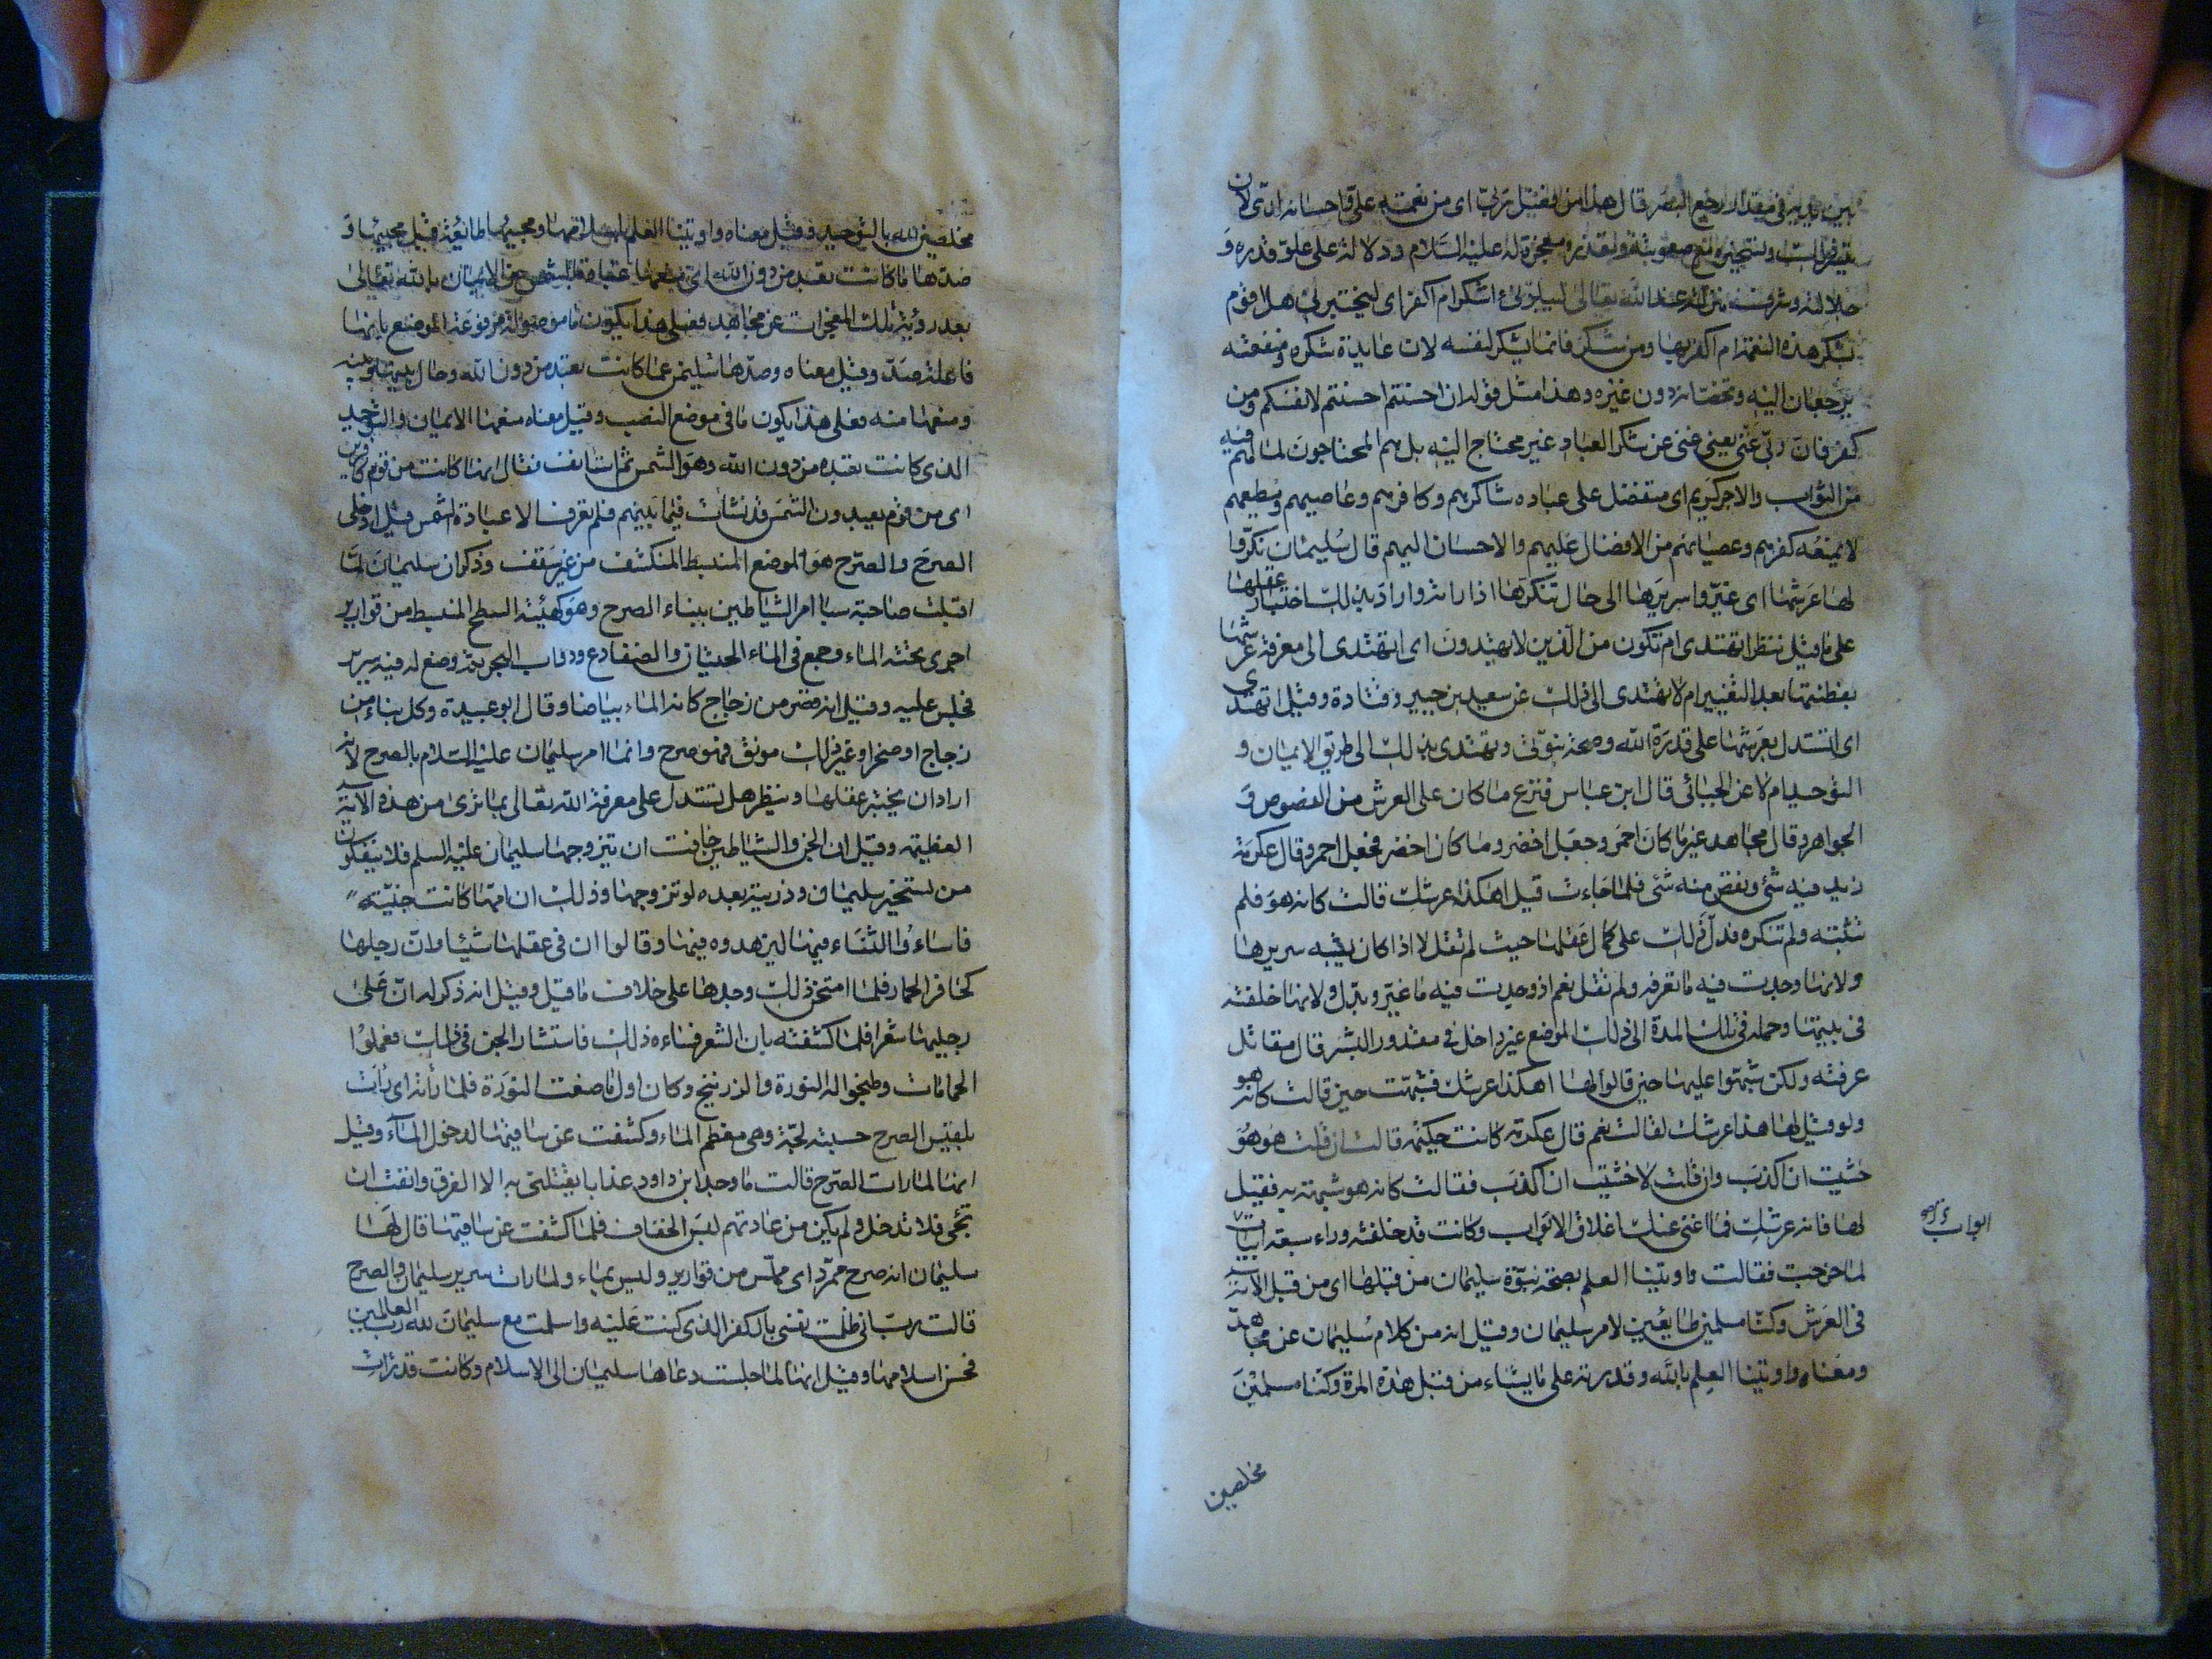 بين يديه في مقدار رجع البصر قال هذا من فضل ربي اى من نعمته علىّ واحسانه الىّ لان
تيسر ذلك وتسخيره مع صعوبته وتعذره معجزة له عليه السلام ودلالة على علوّ قدره و
جلالته وشرف منزلته عند الله تعالى ليبلونى ءاشكر ام اكفر اى ليختبرنى هل اقوم
بشكر هذه النعمة ام اكفر بها ومن شكر فانما يشكر لنفسه لان عايدة شكره ومنفعته
يرجعان اليه وتخصانه دون غيره وهذا مثل قوله ان احسنتم احسنتم لانفسكم ومن
كفر فان ربى غنى يعنى غنى عن شكر العباد غير محتاج اليه بل هم المحتاجون لما لهم فيه
من الثواب والاجر كريم اى متفضل على عباده شاكرهم وكافرهم وعاصيهم ومطيعهم
لا يمنعه كفرهم وعصيانهم من الافضال عليهم والاحسان اليهم قال سليمان نكّروا
لها عرشها اى غيّروا سريرها الى حال تنكرها اذا راته واراد بذلك اختبار عقلها
على ما قيل ننظر اتهتدى ام تكون من الذين لا يهتدون اى اتهتدى الى معرفة عرشها
بفطنتها بعد التغيير ام لا تهتدى الى ذلك عن سعيد بن جبير وقتادة وقيل اتهتدى
اى اتستدل بعرشها على قدرة الله وصحة نبوّتى وتهتدى بذلك الى طريق الايمان و
التوحيد ام لا عن الجبائى قال ابن عباس فنزع ما كان على العرش من الفصوص و
الجواهر وقال مجاهد غير ما كان احمر وجعل اخضر وما كان اخضر فجعل احمر وقال عكرمة
زيد فيه شئ ونقص منه شئ فلما جاءت قيل اهكذا عرشك قالت كانه هو فلم
تثبته ولم تنكره فدل ذلك على كمال عقلها حيث لم تقل لا اذا كان يشبه سريرها
ولانها وجدت فيه ما تعرفه ولم تقل نعم اذ وجدت فيه ما غيّر وبدّل ولانها خلفته
فى بيتها وحمله فى تلك المدة الى ذلك الموضع غير داخل فى مقدور البشر قال مقاتل
عرفته ولكن شبهوا عليها حين قالوا لها اهكذا عرشك فشبهت حين قالت كانه هو
ولو قيل لها هذا عرشك لقالت نعم قال عكرمة كانت حكيمة قالت ان قلت هو هو
خشيت ان اكذب وان قلت لا خشيت ان اكذب فقالت كانه هو شبهته به فقيل
لها فانه عرشك فما اغنى عنك اغلاق الابواب وكانت قد خلفته وراء سبعة ابيات
لما خرجت فقالت واوتينا العلم بصحة نبوّة سليمان من قبلها اى من قبل الاية
فى العرش وكنا مسلمين طايعين لامر سليمان وقيل انه من كلام سليمان عن مجاهد
ومعناه واوتينا العلم بالله وقدرته على ما يشاء من قبل هذه المرة وكنا مسلمين
مخلصين
مخلصين لله بالتوحيد وقيل معناه واوتينا العلم باسلامها ومجيئها طائعة قبل مجيئها و
صدها ما كانت تعبد من دون الله اى منعها عبادة الشمس عن الايمان بالله تعالى
بعد رؤية تلك المعجزات عن مجاهد فعلى هذا يكون ما موصولة مرفوعة الموضع بانها
فاعلة صدّ وقيل معناه وصدّها سليمن عما كانت تعبد من دون الله وحال بينها وبينه
ومنعها منه فعلى هذا يكون ما فى موضع النصب وقيل معناه منعها الايمان والتوحيد
الذى كانت تعبده من دون الله وهو الشمس ثم استانف فقال انها كانت من قوم كافرين
اى من قوم يعبدون الشمس قد نشات فيما بينهم فلم تعرف الا عبادة الشمس قيل ادخلى
الصرح والصرح هو الموضع المنبسط المنكشف من غير سقف وذكر ان سليمان لما
اقبلت صاحبة سبا امر الشياطين ببناء الصرح وهو كهيئة السطح المنبسط من قوارير
اجرى تحته الماء وجمع فى الماء الحيتان والضفادع ودواب البحر ثم وضع له فيه سرير
فجلس عليه وقيل انه قصر من زجاج كانه الماء بياضا وقال ابو عبيدة وكل بناء من
زجاج او صخر او غير ذلك موثق فهو صرح وانما امر سليمان عليه السلام بالصرح لانه
اراد ان يختبر عقلها وينظر هل تستدل على معرفة الله تعالى بما ترى من هذه الاية
العظيمة وقيل ان الجن والشياطين خافت ان يتزوجها سليمان عليه السلم فلا ينفكون
من تسخير سليمان وذريته بعده لو تزوجها وذلك ان امّها كانت جنيّة
فاساءوا الثناء فيها ليزهدوه فيها وقالوا ان فى عقلها شيئا وانّ رجلها
كحافر الحمار فلما امتحن ذلك وجدها على خلاف ما قيل وقيل انه ذكر له انّ على
رجليها شعرا فلما كشفته بان الشعر فساءه ذلك فاستشار الجن فى ذلك فعملوا
الحمامات وطبخوا له النورة والزرنيخ وكان اول ما صنعت النورة فلما راته اى رات
بلقيس الصرح حسبته لجّة وهى معظم الماء وكشفت عن ساقيها لدخول الماء وقيل
انها لما رات الصرح قالت ما وجد ابن داود عذابا يقتلنى به الا الغرق وانفت ان
تجئ فلا تدخل ولم يكن من عادتهم لبس الخفاف فلما كشفت عن ساقيها قال لها
سليمان انه صرح ممرّد اى مملّس من قوارير وليس بماء ولما رات سرير سليمان والصرح
قالت رب انى ظلمت نفسى بالكفر الذى كنت عليه واسلمت مع سليمان لله رب العالمين
فحسن اسلامها وقيل انها لما جلست دعاها سليمان الى الاسلام وكانت قد رات